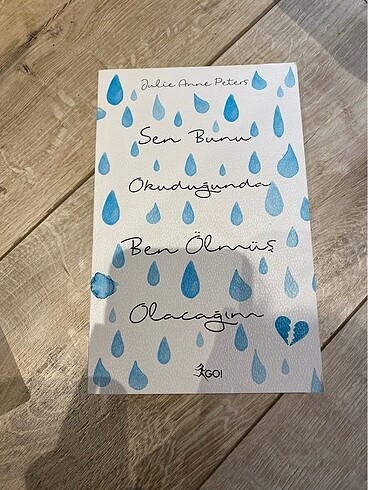 Julie Anne Peters
Sen Bunu
Okuduğunda
Ben Ölmüş
Olacağım
GO!